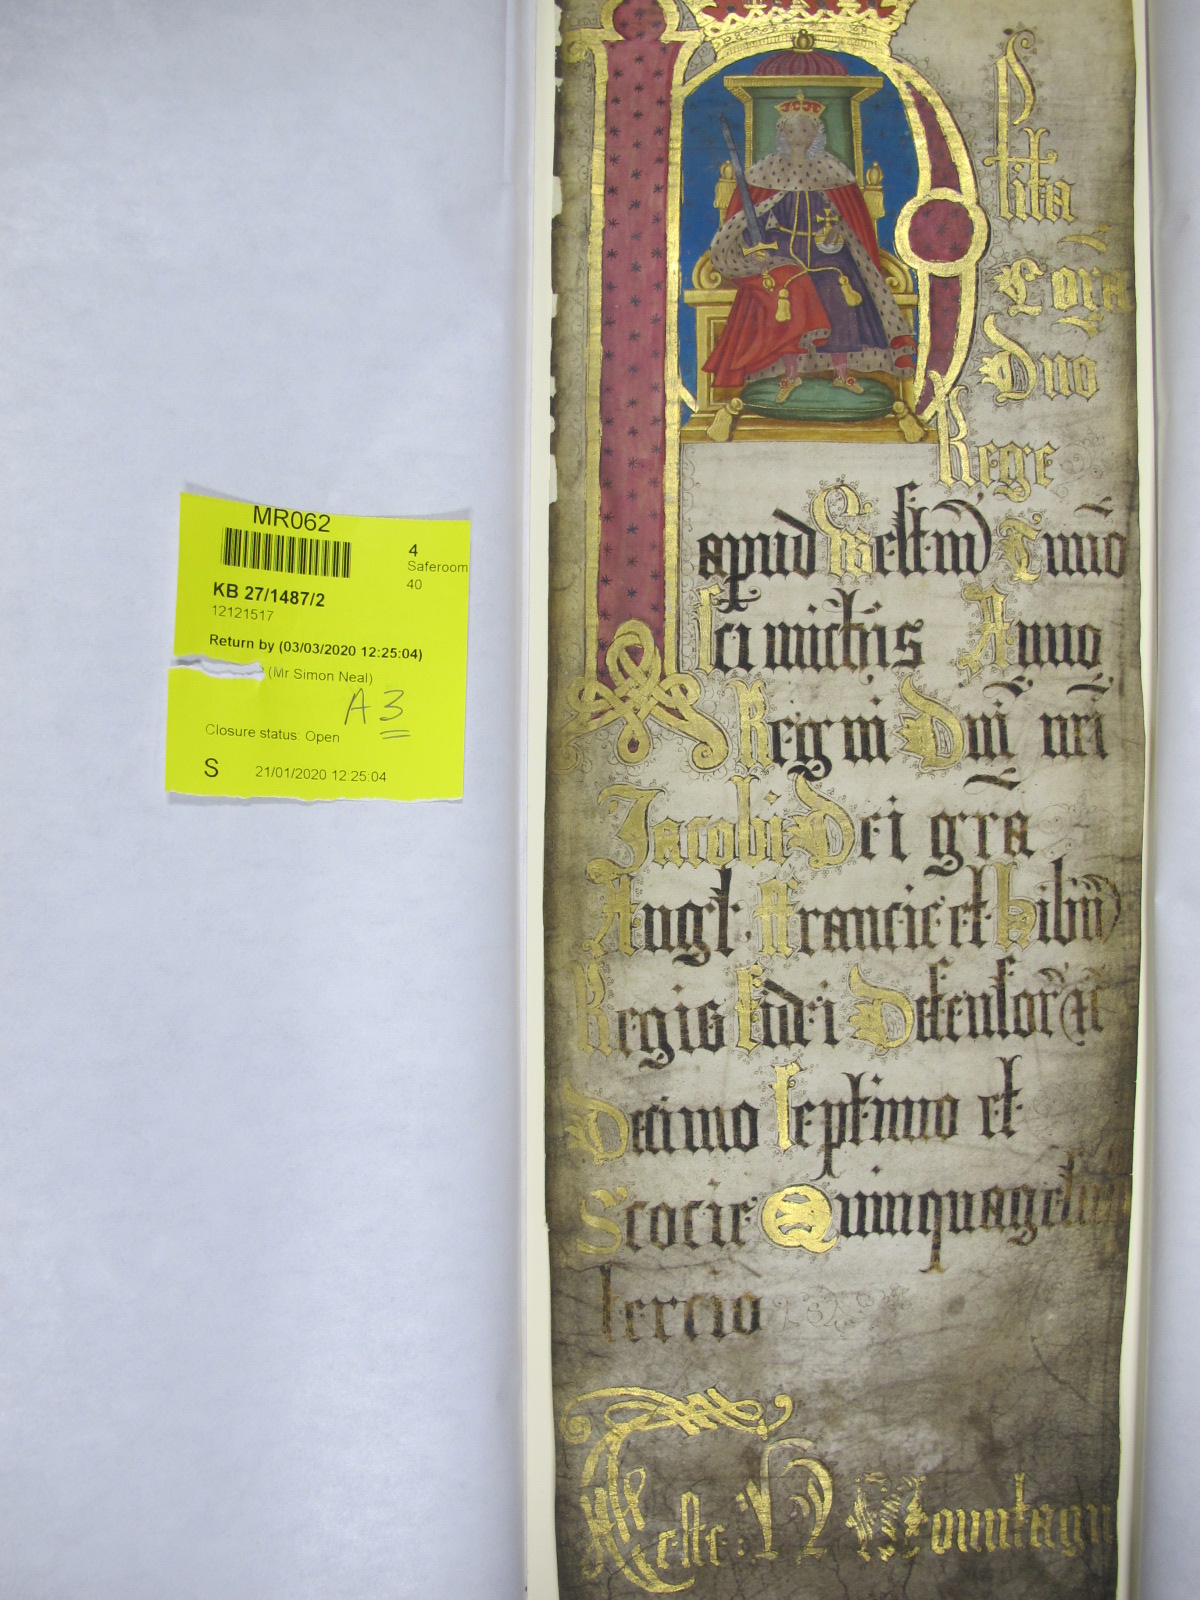 MR062
4
Saferoom
40
KB 27/1487/2
12121517
Return by (03/03/2020 12:25:04)
(Mr Simon Neal)
A3
Closure status: Open
S 21/01/2020 12:25:04
Plita
Cora
Dno
Rege
apud Westm Tmino
Sci Michis Anno
Regni Dni nri
Jacobi Dei gra
Angl Francie et Hibn
Regis Fidei Defensor &c
Decimo Septimo et
Scocie Quinquagesimo
tercio
Teste H Mountagu